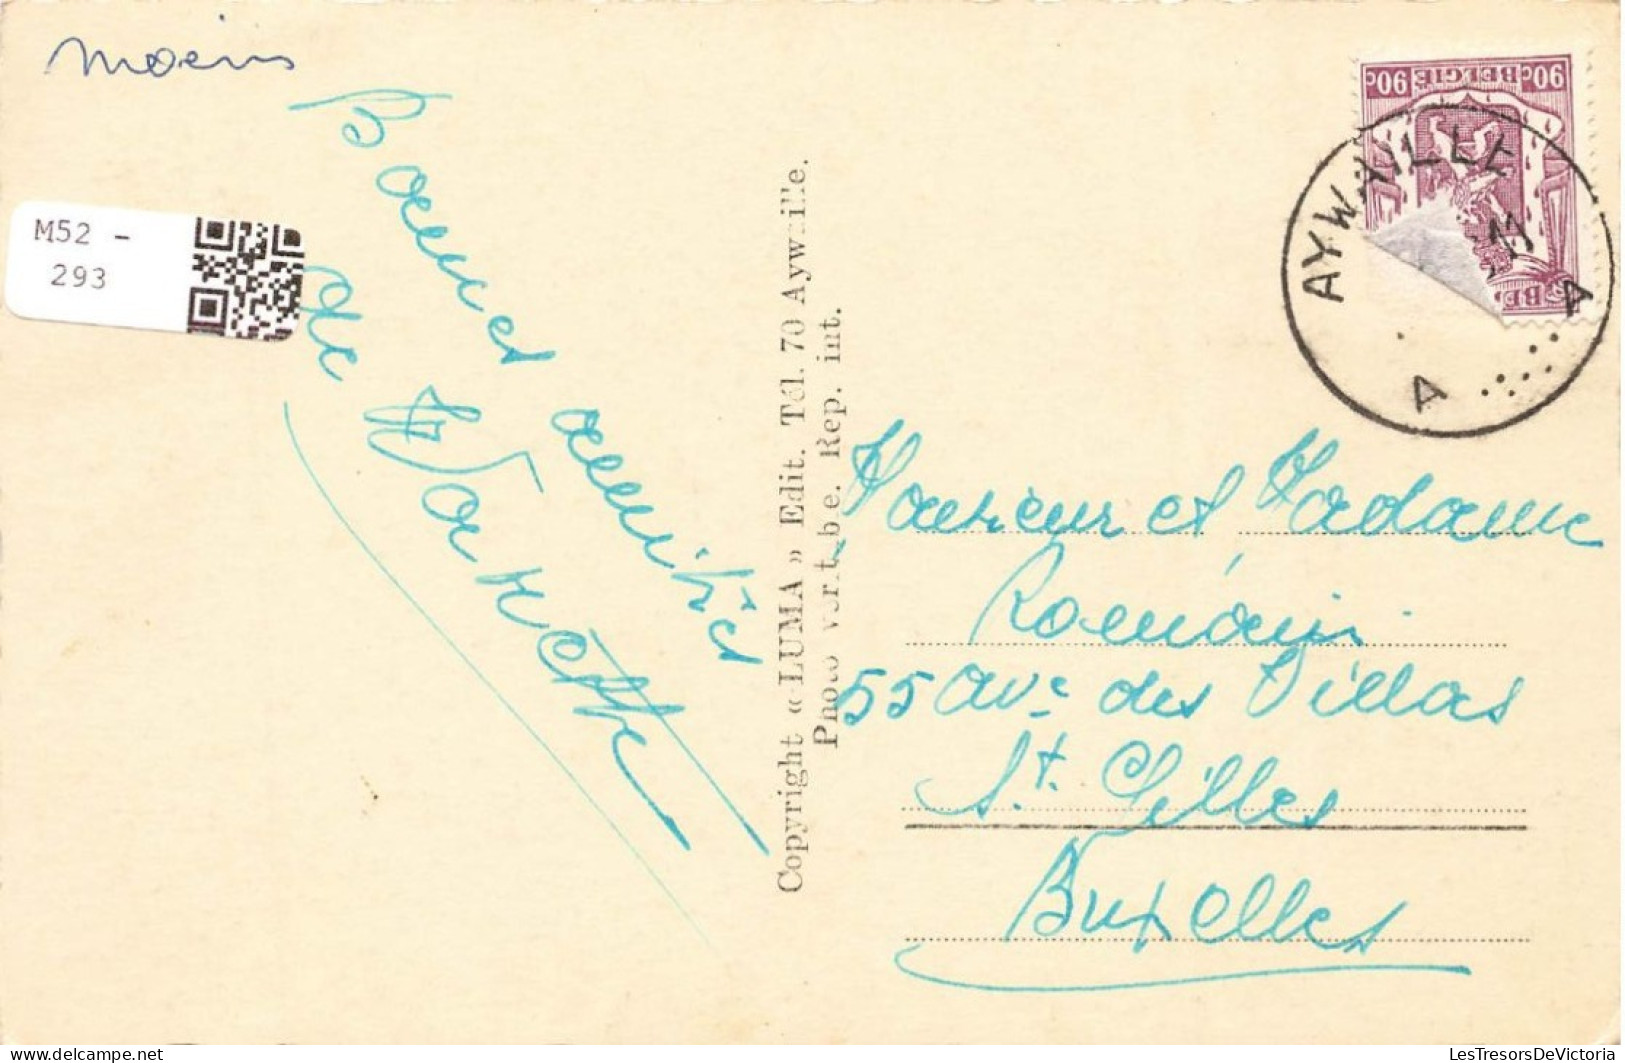 moins
M52 -
293
Bonnes amitiés
de
Copyright « LUMA » Edit. Tél. 70 Aywaille.
Photo vérit.be. Rep. int.
90c BELGIE 90c
AYWAILLE
11
A A
Monsieur et Madame
Romain
55 ave des Villas
St. Gilles
Bruxelles
LesTresorsDeVictoria